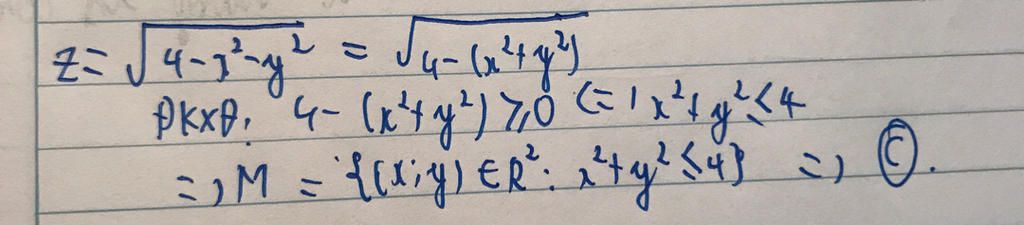 z = √(4-x²-y²) = √(4-(x²+y²))
ĐKXĐ: 4-(x²+y²) ⩾ 0 <=> x²+y² ≤ 4
=> M = {(x;y) ∈ R²: x²+y² ≤ 4} => Ⓒ.